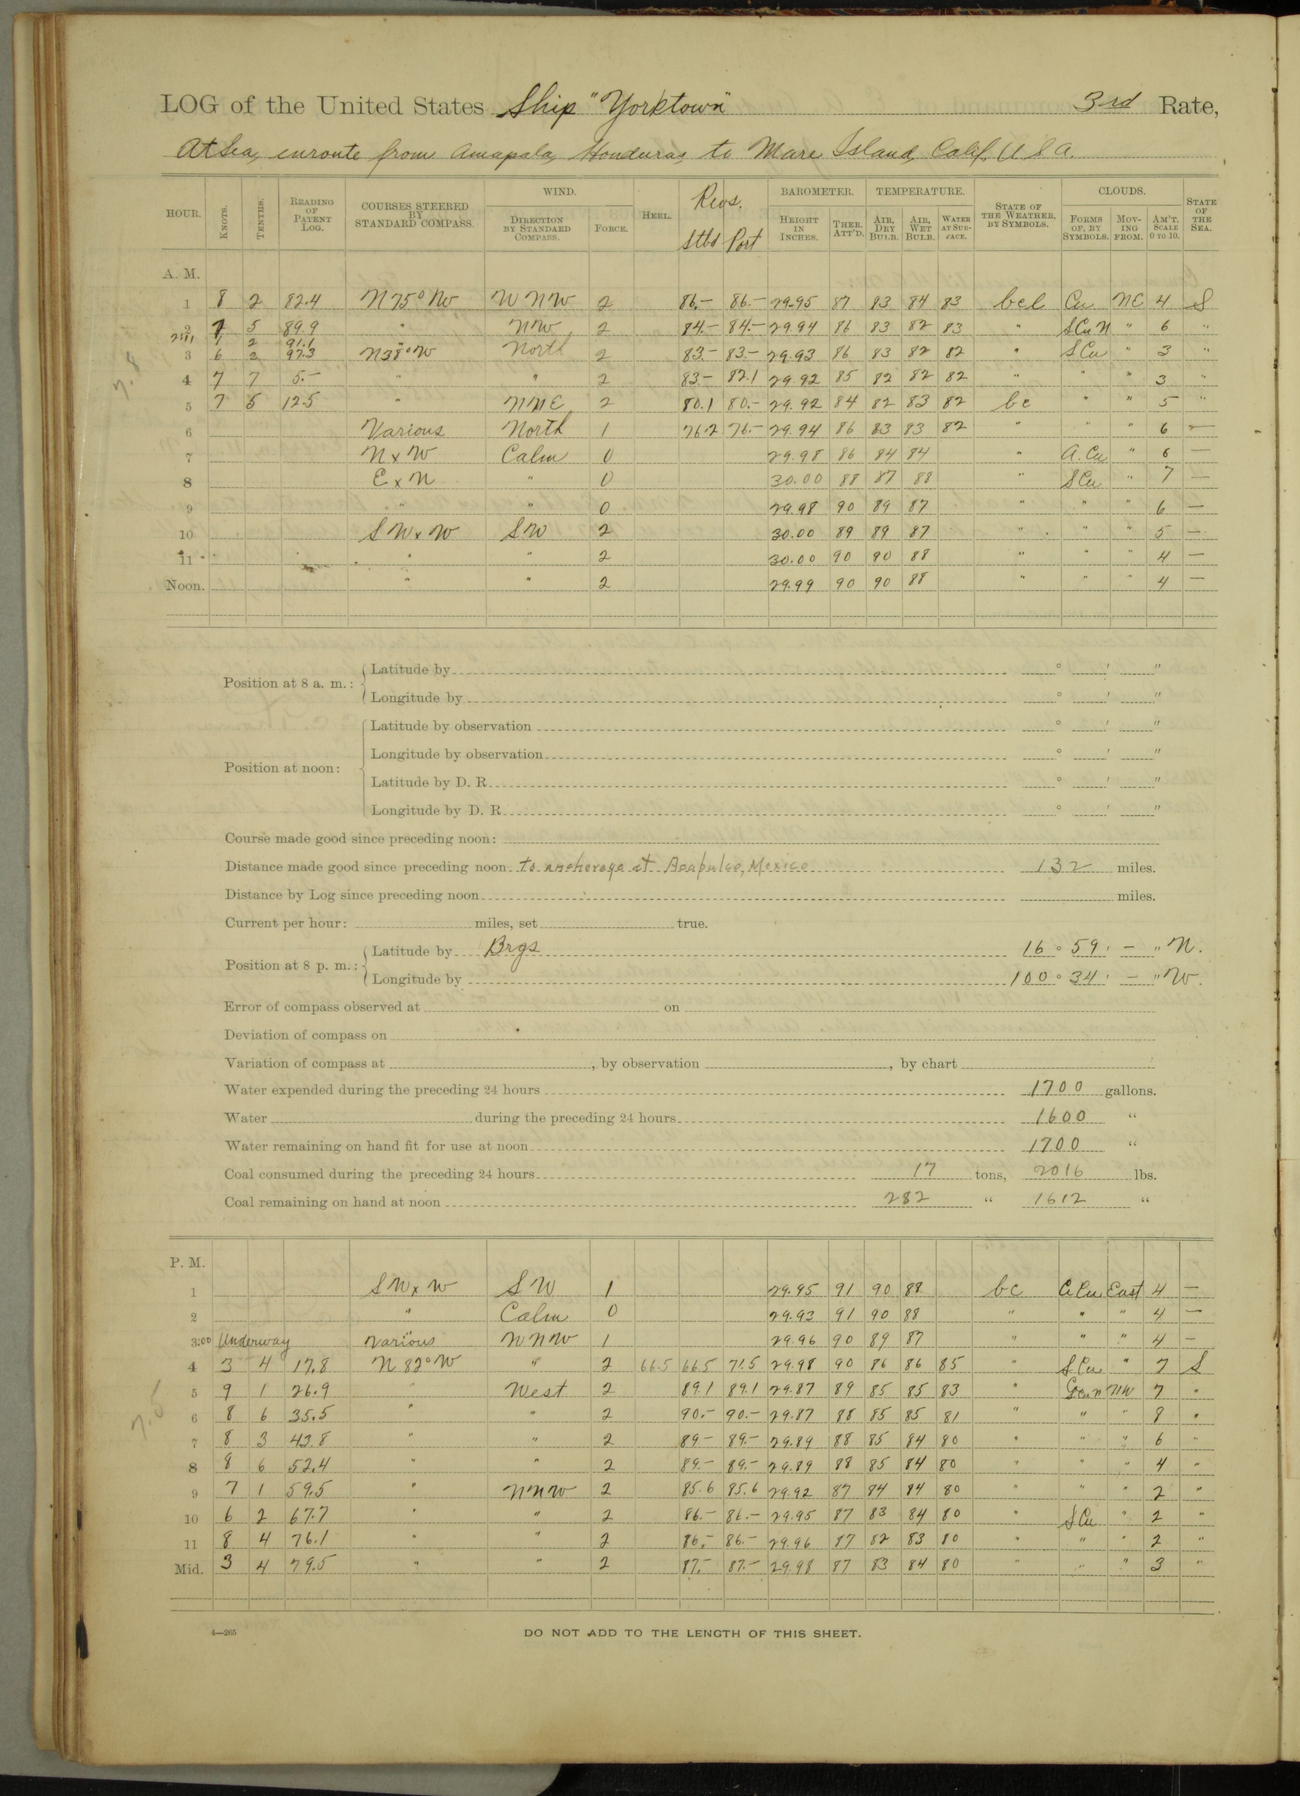 LOG of the United States Ship "Yorktown" 3rd Rate,
At Sea, enroute from Amapala, Honduras, to Mare Island, Calif. U.S.A.
HOUR. KNOTS. TENTHS. READING OF PATENT LOG. COURSES STEERED BY STANDARD COMPASS. WIND. DIRECTION BY STANDARD COMPASS. FORCE. HEEL. Revs. Stbd Port BAROMETER. HEIGHT IN INCHES. THER. ATT'D. TEMPERATURE. AIR, DRY BULB. AIR, WET BULB. WATER AT SURFACE. STATE OF THE WEATHER, BY SYMBOLS. CLOUDS. FORMS OF, BY SYMBOLS. MOVING FROM. AM'T. SCALE 0 TO 10. STATE OF THE SEA.
A. M.
1 8 2 82.4 N 75° W W N W 2 86.- 86.- 29.95 87 83 84 83 bcl Cu NE 4 S
2 7 5 89.9 " NW 2 84.- 84.- 29.94 86 83 82 83 " S Cu N " 6 "
2:11 1 2 91.1
3 6 2 97.3 N38°W North 2 83.- 83.- 29.93 86 83 82 82 " S Cu " 3 "
4 7 7 5.- " " 2 83.- 82.1 29.92 85 82 82 82 " " " 3 "
5 7 5 12.5 " NNE 2 80.1 80.- 29.92 84 82 83 82 bc " " 5 "
6 Various North 1 76.2 76.- 29.94 86 83 83 82 " " " 6 —
7 N x W Calm 0 29.98 86 84 84 " A. Cu " 6 —
8 E x N " 0 30.00 88 87 88 " S Cu " 7 —
9 " " 0 29.98 90 89 87 " " " 6 —
10 S W x W S W 2 30.00 89 89 87 " " " 5 —
11 " " 2 30.00 90 90 88 " " " 4 —
Noon. " " 2 29.99 90 90 88 " " " 4 —
Position at 8 a. m.: Latitude by ° ' "
Longitude by ° ' "
Position at noon: Latitude by observation ° ' "
Longitude by observation ° ' "
Latitude by D. R. ° ' "
Longitude by D. R. ° ' "
Course made good since preceding noon:
Distance made good since preceding noon to anchorage at Acapulco, Mexico 132 miles.
Distance by Log since preceding noon miles.
Current per hour: miles, set true.
Position at 8 p. m.: Latitude by Brgs 16 ° 59 ' — " N.
Longitude by 100 ° 34 ' — " W.
Error of compass observed at on
Deviation of compass on
Variation of compass at , by observation , by chart
Water expended during the preceding 24 hours 1700 gallons.
Water during the preceding 24 hours 1600 "
Water remaining on hand fit for use at noon 1700 "
Coal consumed during the preceding 24 hours 17 tons, 2016 lbs.
Coal remaining on hand at noon 282 " 1612 "
P. M.
1 S W x W S W 1 29.95 91 90 88 bc Ci Cu East 4 —
2 " Calm 0 29.93 91 90 88 " " " 4 —
3:00 Underway Various W N W 1 29.96 90 89 87 " " " 4 —
4 3 4 17.8 N 82° W " 2 66.5 66.5 71.5 29.98 90 86 86 85 " S Cu " 7 S
5 9 1 26.9 " West 2 89.1 89.1 29.87 89 85 85 83 " NW 7 "
6 8 6 35.5 " " 2 90.- 90.- 29.87 88 85 85 81 " " " 8 "
7 8 3 43.8 " " 2 89.- 89.- 29.89 88 85 84 80 " " " 6 "
8 8 6 52.4 " " 2 89.- 89.- 29.89 88 85 84 80 " " " 4 "
9 7 1 59.5 " NNW 2 85.6 85.6 29.92 87 84 84 80 " " " 2 "
10 6 2 67.7 " " 2 86.- 86.- 29.95 87 83 84 80 " S Cu " 2 "
11 8 4 76.1 " " 2 86.- 86.- 29.96 87 82 83 80 " " " 2 "
Mid. 3 4 79.5 " " 2 87.- 87.- 29.98 87 83 84 80 " " " 3 "
4—265
DO NOT ADD TO THE LENGTH OF THIS SHEET.
7.8
7.5